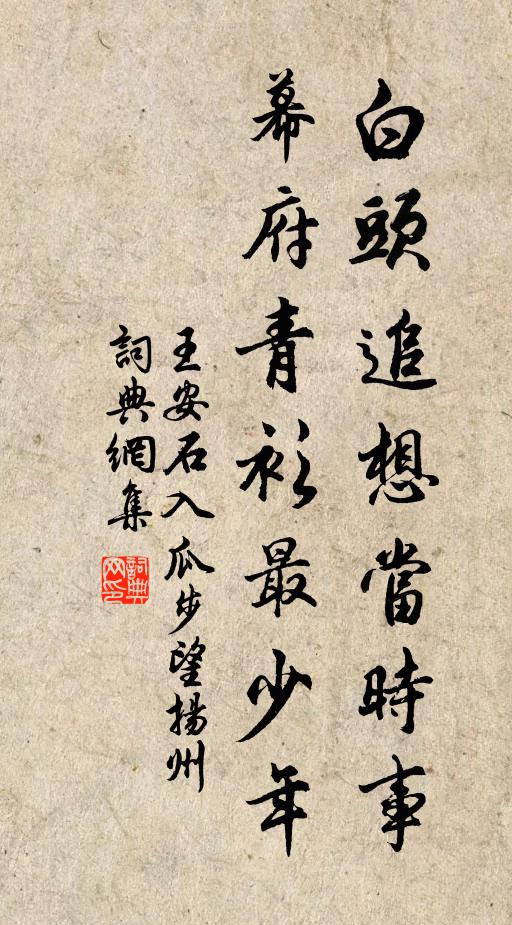 白頭追想當時事
幕府青衫最少年
王安石入瓜步望揚州
詞典網集
詞典网印